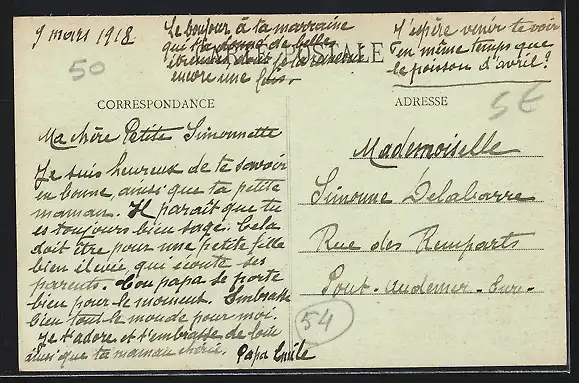 9 mars 1918
Le bonjour à ta marraine
qui t'a donné de belles
étrennes, dont je la remercie
encore une fois.
J'espère venir te voir
en même temps que
le poisson d'avril?
CARTE POSTALE
50
5€
CORRESPONDANCE
ADRESSE
Ma chère Petite Simonnette
Je suis heureux de te savoir
en bonne, ainsi que ta petite
maman. Il parait que tu
es toujours bien sage. Cela
doit être pour une petite fille
bien élevée, qui écoute ses
parents. Ton papa se porte
bien pour le moment. Embrasse
bien tout le monde pour moi.
Je t'adore et t'embrasse de loin
ainsi que ta maman chérie.
Papa Emile
Mademoiselle
Simonne Delabarre
Rue des Remparts
Pont-Audemer - Eure -
54